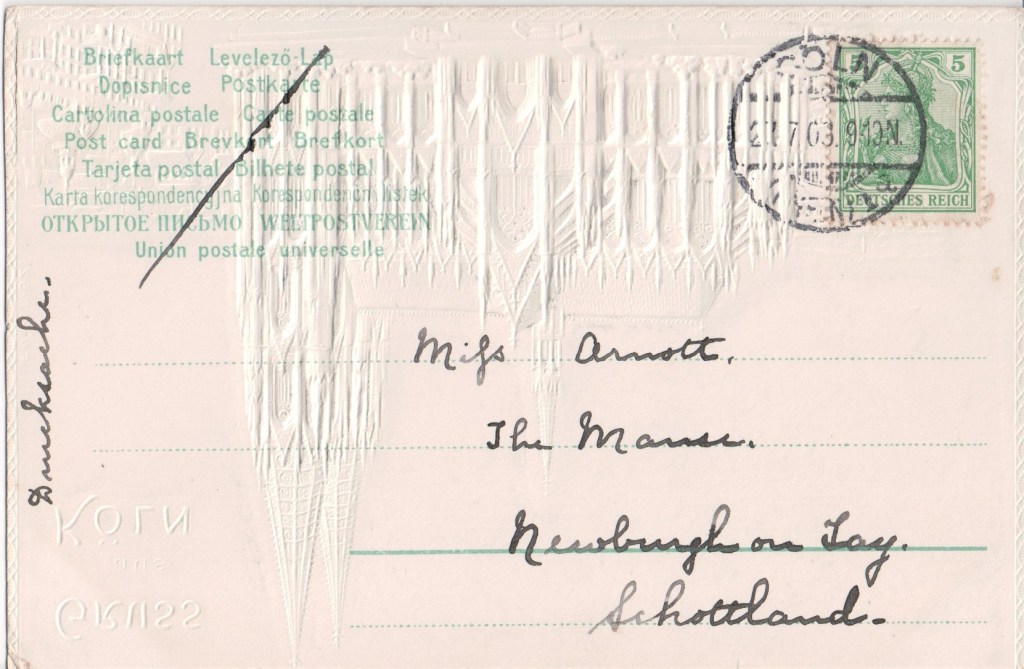 Briefkaart Levelező-Lap
Dopisnice Postkarte
Cartolina postale Carte postale
Post card Brevkort Brefkort
Tarjeta postal Bilhete postal
Karta korespondencyjna Korespondenčni listek
ОТКРЫТОЕ ПИСЬМО WELTPOSTVEREIN
Union postale universelle
CÖLN
27.7.03.9-10N.
5
DEUTSCHES REICH
Drucksache.
Miss Arnott.
The Manse.
Newburgh on Tay.
Schottland.
GRUSS
aus
KÖLN